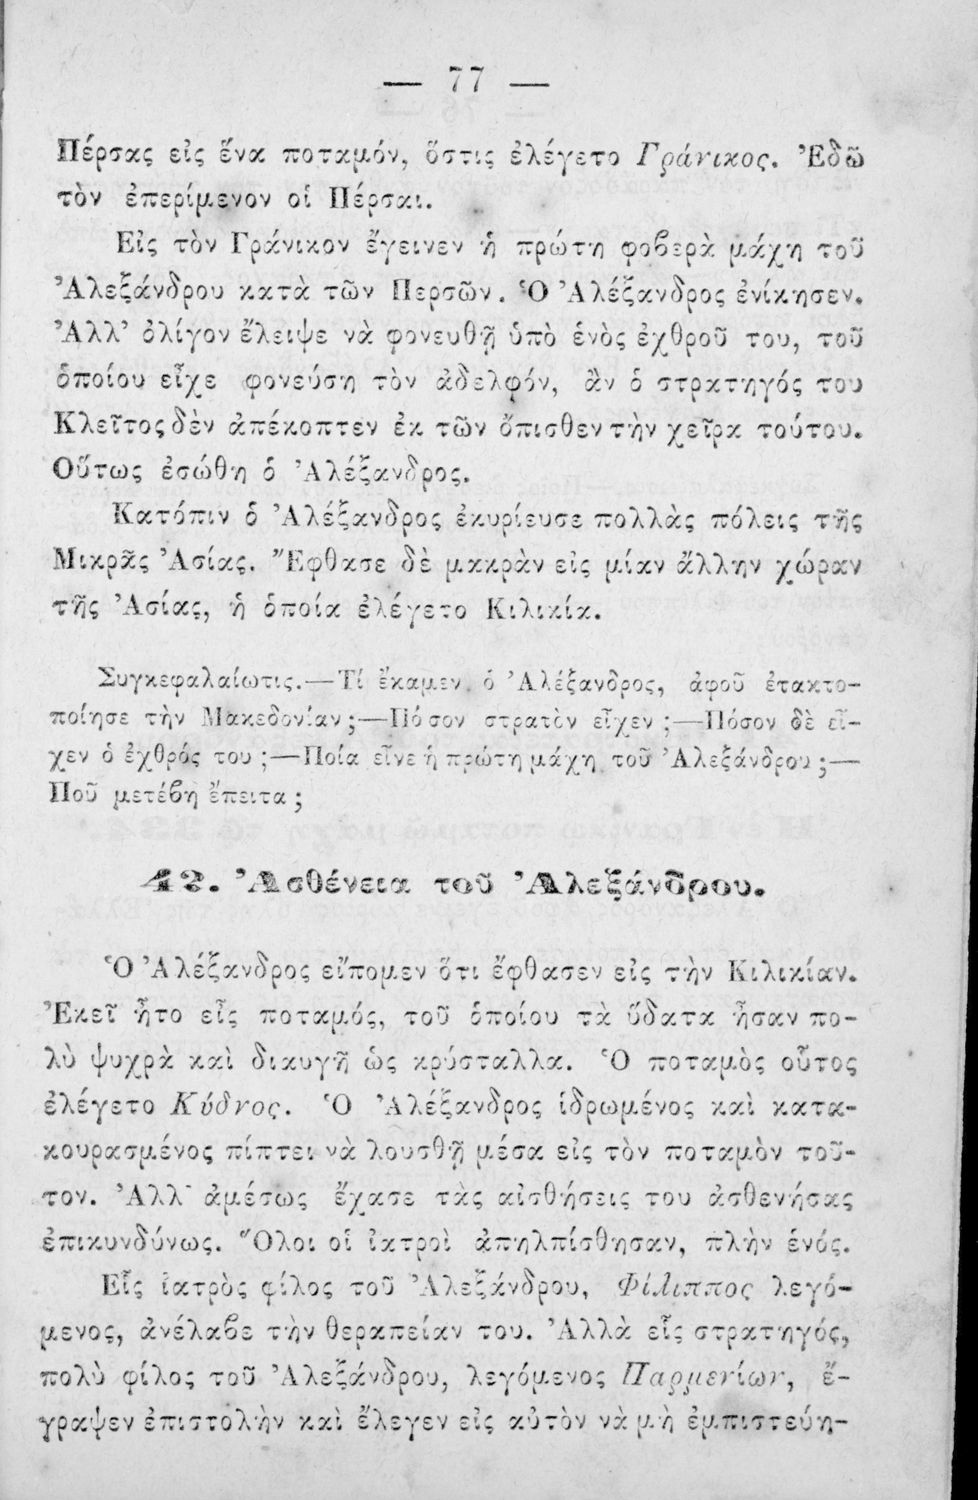 — 77 —
Πέρσας εἰς ἕνα ποταμόν, ὅστις ἐλέγετο Γράνικος. Ἐδῶ
τὸν ἐπερίμενον οἱ Πέρσαι.
Εἰς τὸν Γράνικον ἔγεινεν ἡ πρώτη φοβερὰ μάχη τοῦ
Ἀλεξάνδρου κατὰ τῶν Περσῶν. Ὁ Ἀλέξανδρος ἐνίκησεν.
Ἀλλ’ ὀλίγον ἔλειψε νὰ φονευθῇ ὑπὸ ἑνὸς ἐχθροῦ του, τοῦ
ὁποίου εἶχε φονεύση τὸν ἀδελφόν, ἂν ὁ στρατηγός του
Κλεῖτος δὲν ἀπέκοπτεν ἐκ τῶν ὄπισθεν τὴν χεῖρα τούτου.
Οὕτως ἐσώθη ὁ Ἀλέξανδρος.
Κατόπιν ὁ Ἀλέξανδρος ἐκυρίευσε πολλὰς πόλεις τῆς
Μικρᾶς Ἀσίας. Ἔφθασε δὲ μακρὰν εἰς μίαν ἄλλην χώραν
τῆς Ἀσίας, ἡ ὁποία ἐλέγετο Κιλικία.
Συγκεφαλαίωτις.—Τί ἔκαμεν ὁ Ἀλέξανδρος, ἀφοῦ ἐτακτο-
ποίησε τὴν Μακεδονίαν;—Πόσον στρατὸν εἶχεν;—Πόσον δὲ εἶ-
χεν ὁ ἐχθρός του;—Ποία εἶνε ἡ πρώτη μάχη τοῦ Ἀλεξάνδρου;—
Ποῦ μετέβη ἔπειτα;
42. Ἀσθένεια τοῦ Ἀλεξάνδρου.
Ὁ Ἀλέξανδρος εἴπομεν ὅτι ἔφθασεν εἰς τὴν Κιλικίαν.
Ἐκεῖ ἦτο εἷς ποταμός, τοῦ ὁποίου τὰ ὕδατα ἦσαν πο-
λὺ ψυχρὰ καὶ διαυγῆ ὡς κρύσταλλα. Ὁ ποταμὸς οὗτος
ἐλέγετο Κύδνος. Ὁ Ἀλέξανδρος ἱδρωμένος καὶ κατα-
κουρασμένος πίπτει νὰ λουσθῇ μέσα εἰς τὸν ποταμὸν τοῦ-
τον. Ἀλλ’ ἀμέσως ἔχασε τὰς αἰσθήσεις του ἀσθενήσας
ἐπικυνδύνως. Ὅλοι οἱ ἰατροὶ ἀπηλπίσθησαν, πλὴν ἑνός.
Εἷς ἰατρὸς φίλος τοῦ Ἀλεξάνδρου, Φίλιππος λεγό-
μενος, ἀνέλαβε τὴν θεραπείαν του. Ἀλλὰ εἷς στρατηγός,
πολὺ φίλος τοῦ Ἀλεξάνδρου, λεγόμενος Παρμενίων, ἔ-
γραψεν ἐπιστολὴν καὶ ἔλεγεν εἰς αὐτὸν νὰ μὴ ἐμπιστεύη-